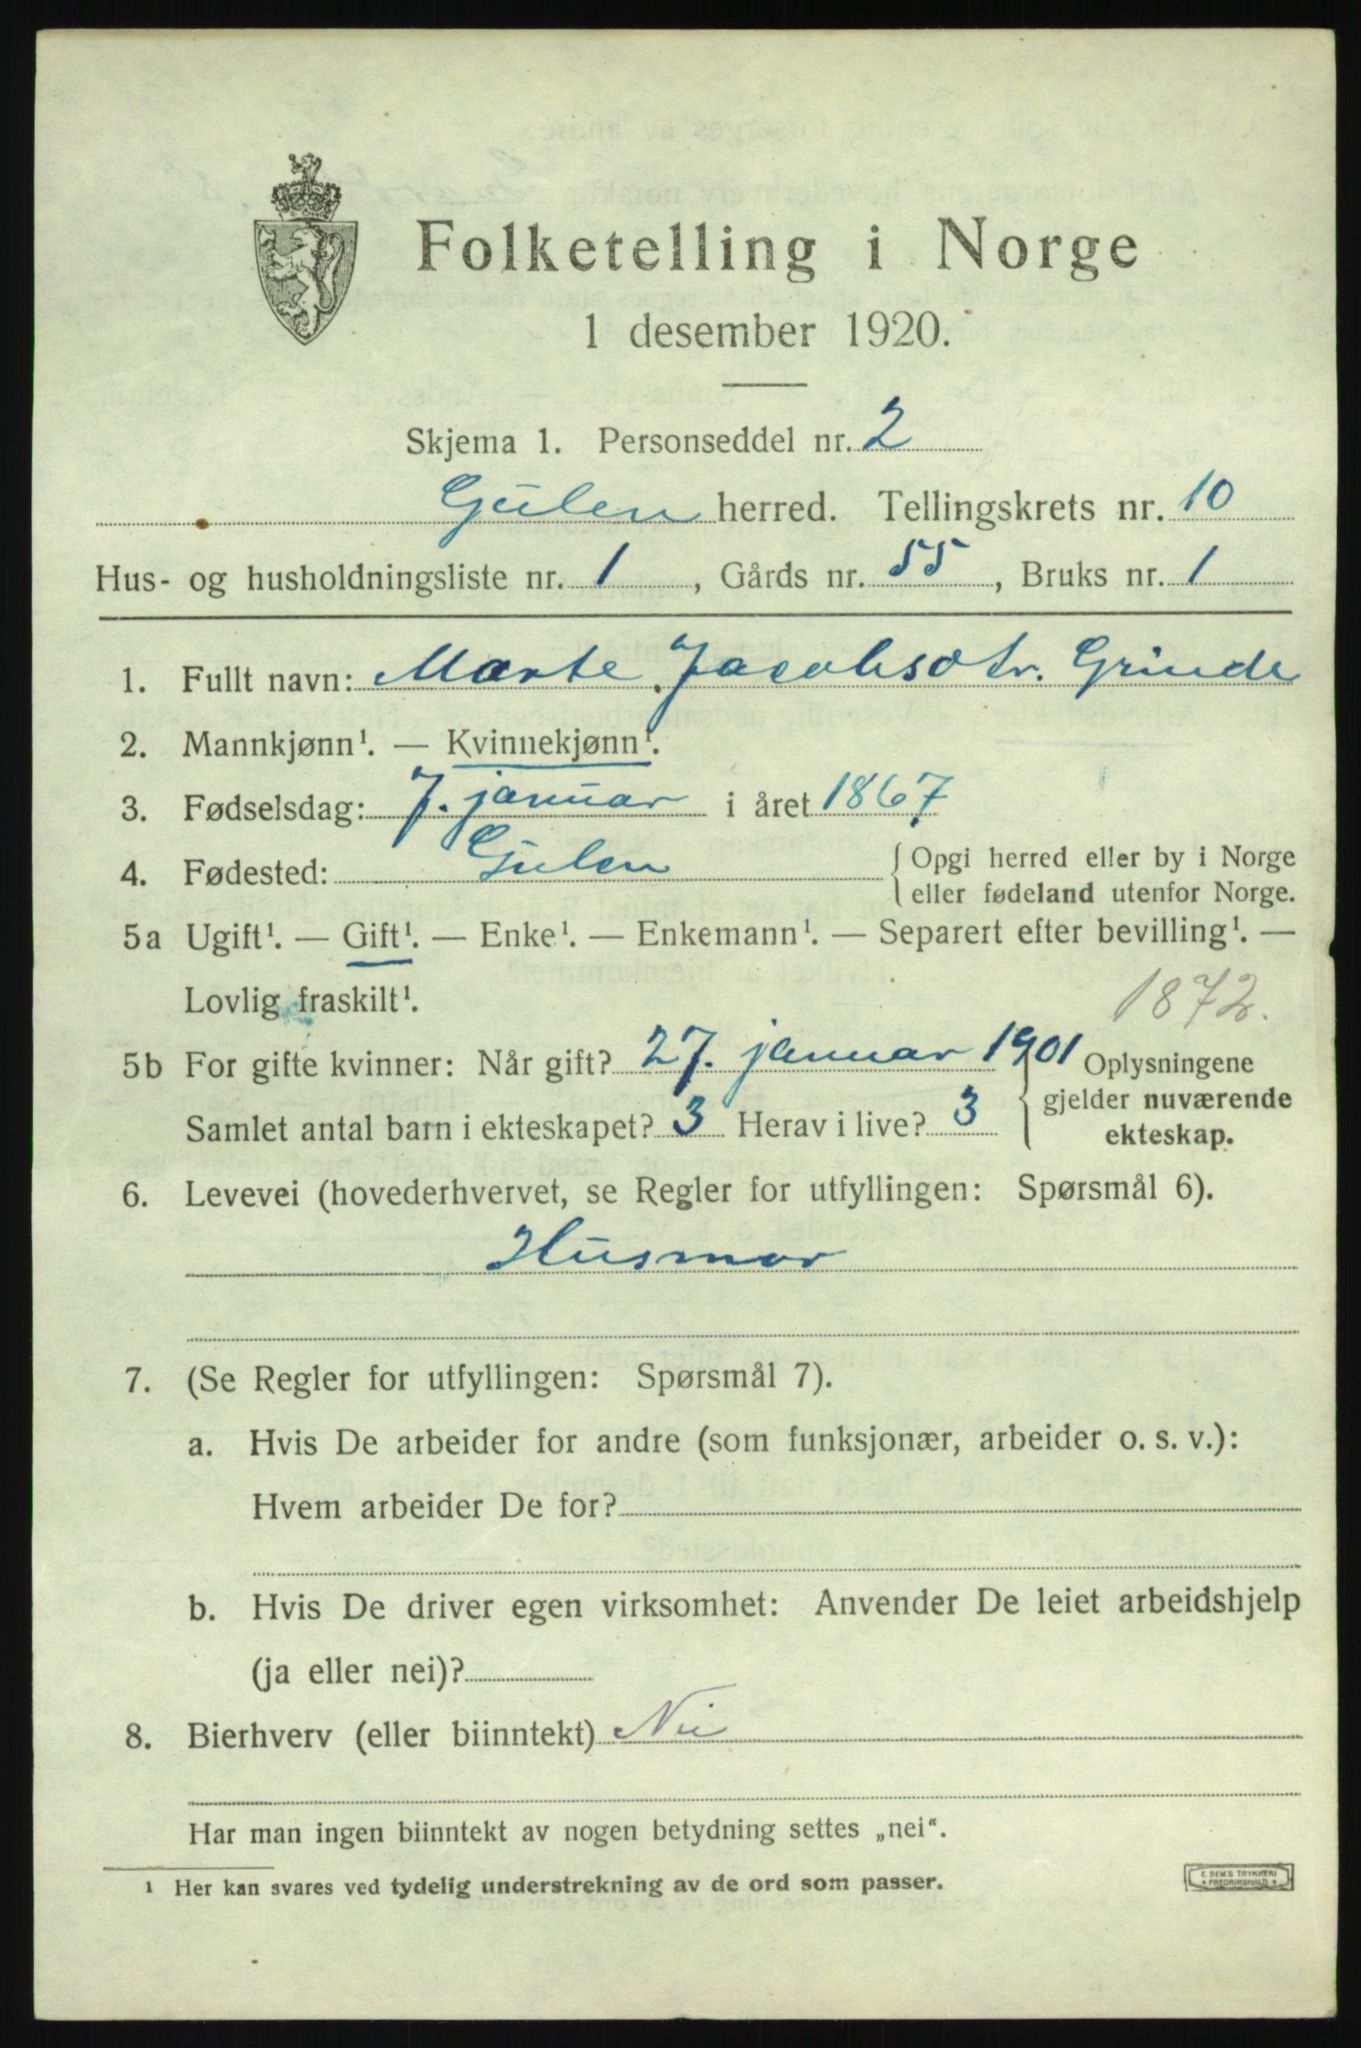 Folketelling i Norge
1 desember 1920.
Skjema 1. Personseddel nr. 2
Gulen herred. Tellingskrets nr. 10
Hus- og husholdningsliste nr. 1, Gårds nr. 55, Bruks nr. 1
1. Fullt navn: Marte Jacobsdtr. Grinde
2. Mannkjønn¹. — Kvinnekjønn¹.
3. Fødselsdag: 7. januar i året 1867
4. Fødested: Gulen { Opgi herred eller by i Norge
eller fødeland utenfor Norge.
5a Ugift¹. — Gift¹. — Enke¹. — Enkemann¹. — Separert efter bevilling¹. —
Lovlig fraskilt¹. 1872.
5b For gifte kvinner: Når gift? 27. januar 1901 Oplysningene
gjelder nuværende
Samlet antal barn i ekteskapet? 3 Herav i live? 3
ekteskap.
6. Levevei (hovederhvervet, se Regler for utfyllingen: Spørsmål 6).
Husmor
7. (Se Regler for utfyllingen: Spørsmål 7).
a. Hvis De arbeider for andre (som funksjonær, arbeider o. s. v.):
Hvem arbeider De for?
b. Hvis De driver egen virksomhet: Anvender De leiet arbeidshjelp
(ja eller nei)?
8. Bierhverv (eller biinntekt) Nei
Har man ingen biinntekt av nogen betydning settes „nei“.
¹ Her kan svares ved tydelig understrekning av de ord som passer.
E. SEM'S TRYKKERI
FREDRIKSHALD